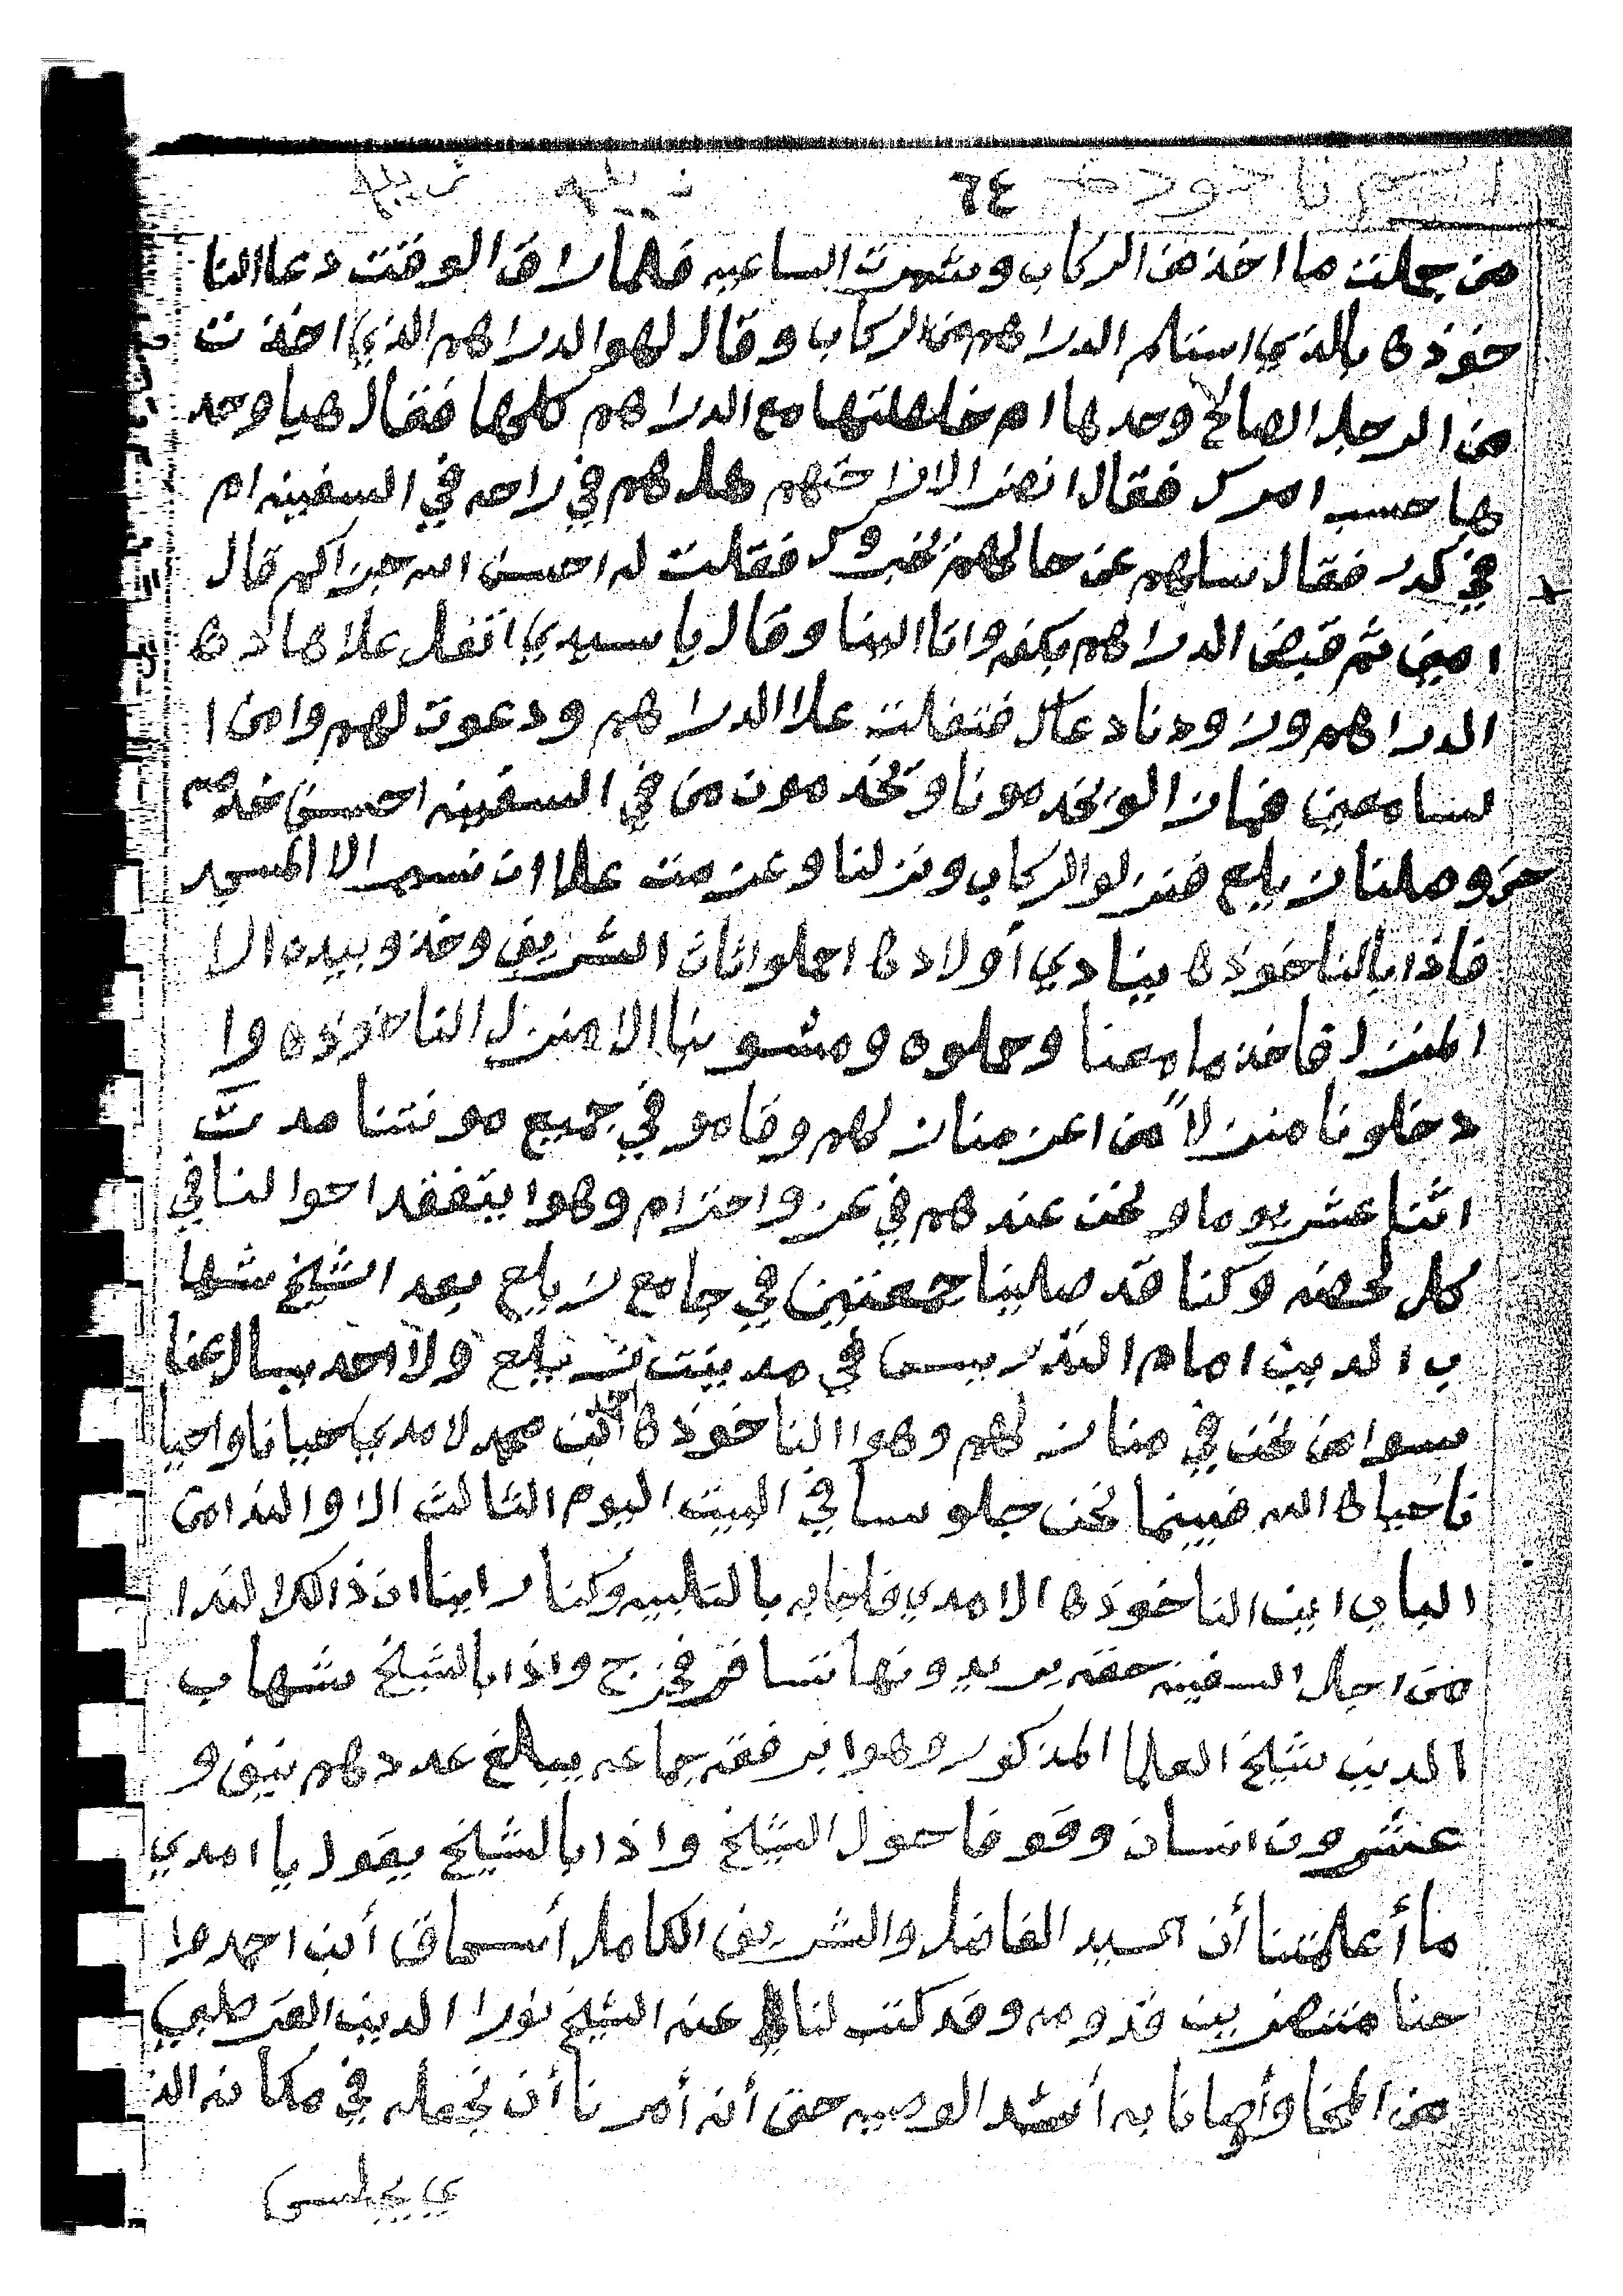 ٦٤
من جملت ما اخذ من الركاب وشهرت الساعيه فلما راق الوقت دعا النا
خوذه بالذي استلم الدراهم من الركاب وقال لهو الدراهم الذي اخذت
من الرجل الصالح وحدها ام خلطتها مع الدراهم كلها فقال هيا وحد
ها حسب امرك فقال انضر الا راحتهم هل هم في راحه في السفينه ام
في كدر فقال سلهم عن حالهم نخبروك فقلت له احسن الله جزاكم قال
امين ثم قبض الدراهم بكفه واتا الينا وقال يا سيدي اتفل علا هاذه
الدراهم وزودنا دعاك فتفلت علا الدراهم ودعوت لهم وامن ا
لسامعين فما زالو يخدمونا ويخدمون من في السفينه احسن خدمه
حتى وصلنا زيلع فنزلو الركاب ونزلنا وعزمت علا ان نسير الا المسجد
فاذا بالناخوذه ينادي أولاده احملو اثاث الشريف وخذو بيده الا
المنزل فاخذ ما معنا وحملوه ومشو بنا الا منزل الناخوذه وا
دخلونا منزلاً من اعز منازلهم وقامو في جميع مونتنا مدت
اثنا عشر يوما ونحن عندهم في عز واحترام وهوا يتفقد احوالنا في
كل لحضه وكنا قد صلينا جمعتين في جامع زيلع بعد الشيخ شها
ب الدين امام التدريسا في مدينت زيلع ولا احد يسال عنا
سوا من نحن في منازلهم وهوا الناخوذه ابن محمد لامدي احيانا واحيا
نا حياه الله فبينما نحن جلوسا في البيت اليوم الثالث الا والندا من
الباب اين الناخوذه الامدي فاجابه بالتلبيه وكنا راينا ان ذالك الندا
من اجل السفينه حقه يريدونها تسافر فخرج واذا بالشيخ شهاب
الدين شيخ العلما المذكور وهوا برفقة جماعه يبلغ عددهم نيف و
عشرون انسان وقوفا حول الشيخ واذا بالشيخ يقول يا امدي
ما أعلمتنا أن السيد الفاضل والشريف الكامل أسحاق أبن احمد وا
حنا منتضرين قدومه وقد كتب لنا عنه الشيخ نورا الدين القرطبي
من المخا وأوصانا به أشد الوصيه حتى أنه أمرنا أن نجعله في مكانه الذ
ي يجلس